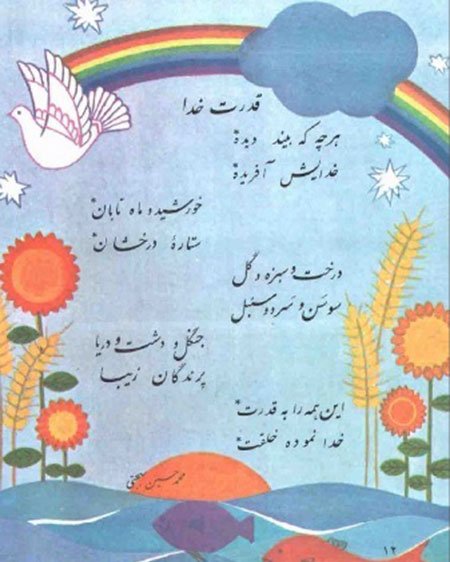 قدرت خدا
هرچه که بیند دیده*
خدایش آفریده*
خورشید و ماه تابان*
ستارهٔ درخشان*
درخت و سبزه و گل
سوسن و سرو و سنبل
جنگل و دشت و دریا
پرندگان زیبا
این همه را به قدرت*
خدا نموده خلقت*
محمد حسین بهجتی
۱۲